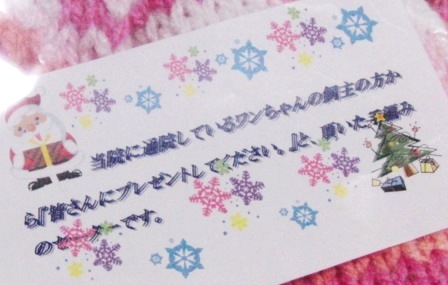 当院に通院しているワンちゃんの飼主の方か
ら『皆さんにプレゼントしてください。』と、頂いた手編み
のセーターです。